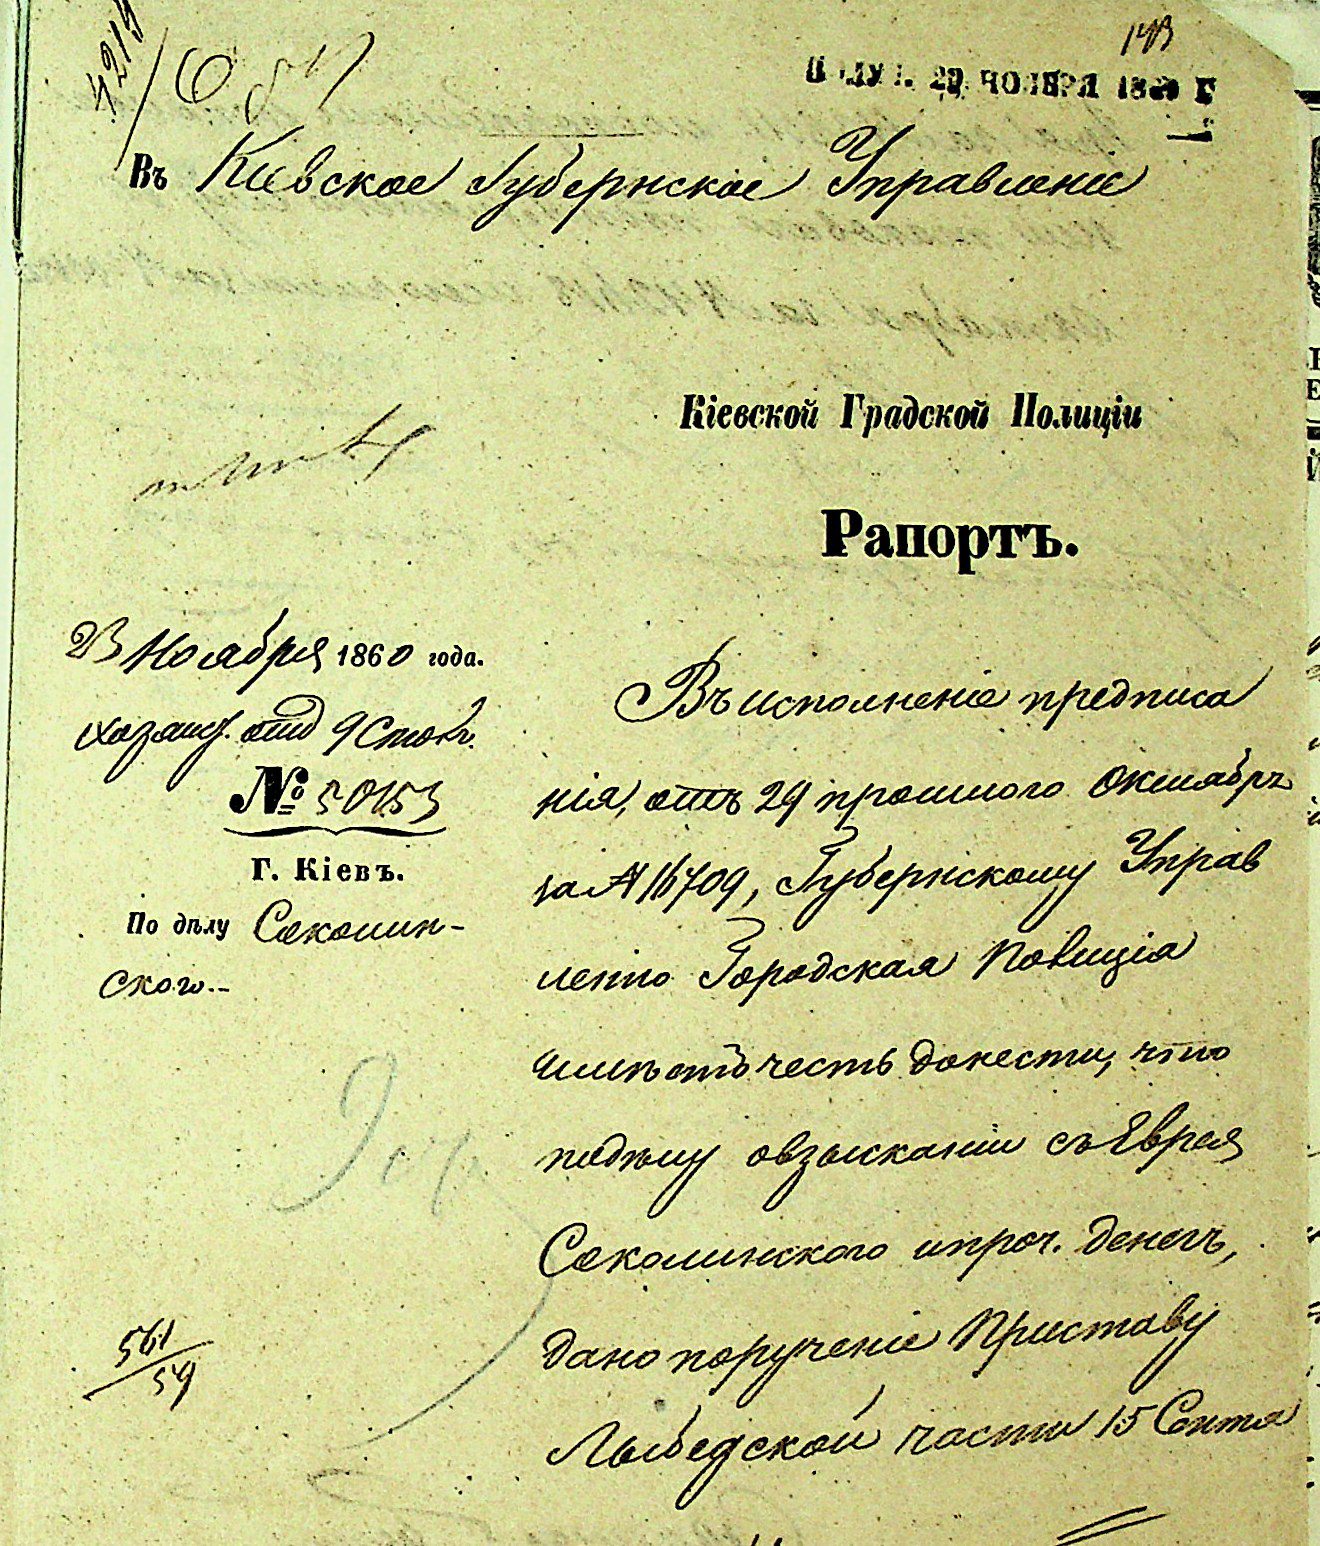 143
Получ. 29 Ноября 1860 г
4219
Въ Кіевское Губернское Управленіе
Кіевской Градской Полиціи
Рапортъ.
23 Ноября 1860 года.
отд 9 Столъ.
№ 50153
Г. Кіевъ.
По дѣлу Секолин-
ского.-
561/59
Въ исполненіе предписа
нія, отъ 29 прошлого Октября
за № 16709, Губернскому Управ
ленію Городская Полиція
имѣетъ честь донести, что
подѣлу овзысканіи съ Еврея
Секолинского ипроч. денегъ,
дано порученіе Приставу
Лыбедской части 15 Сентя